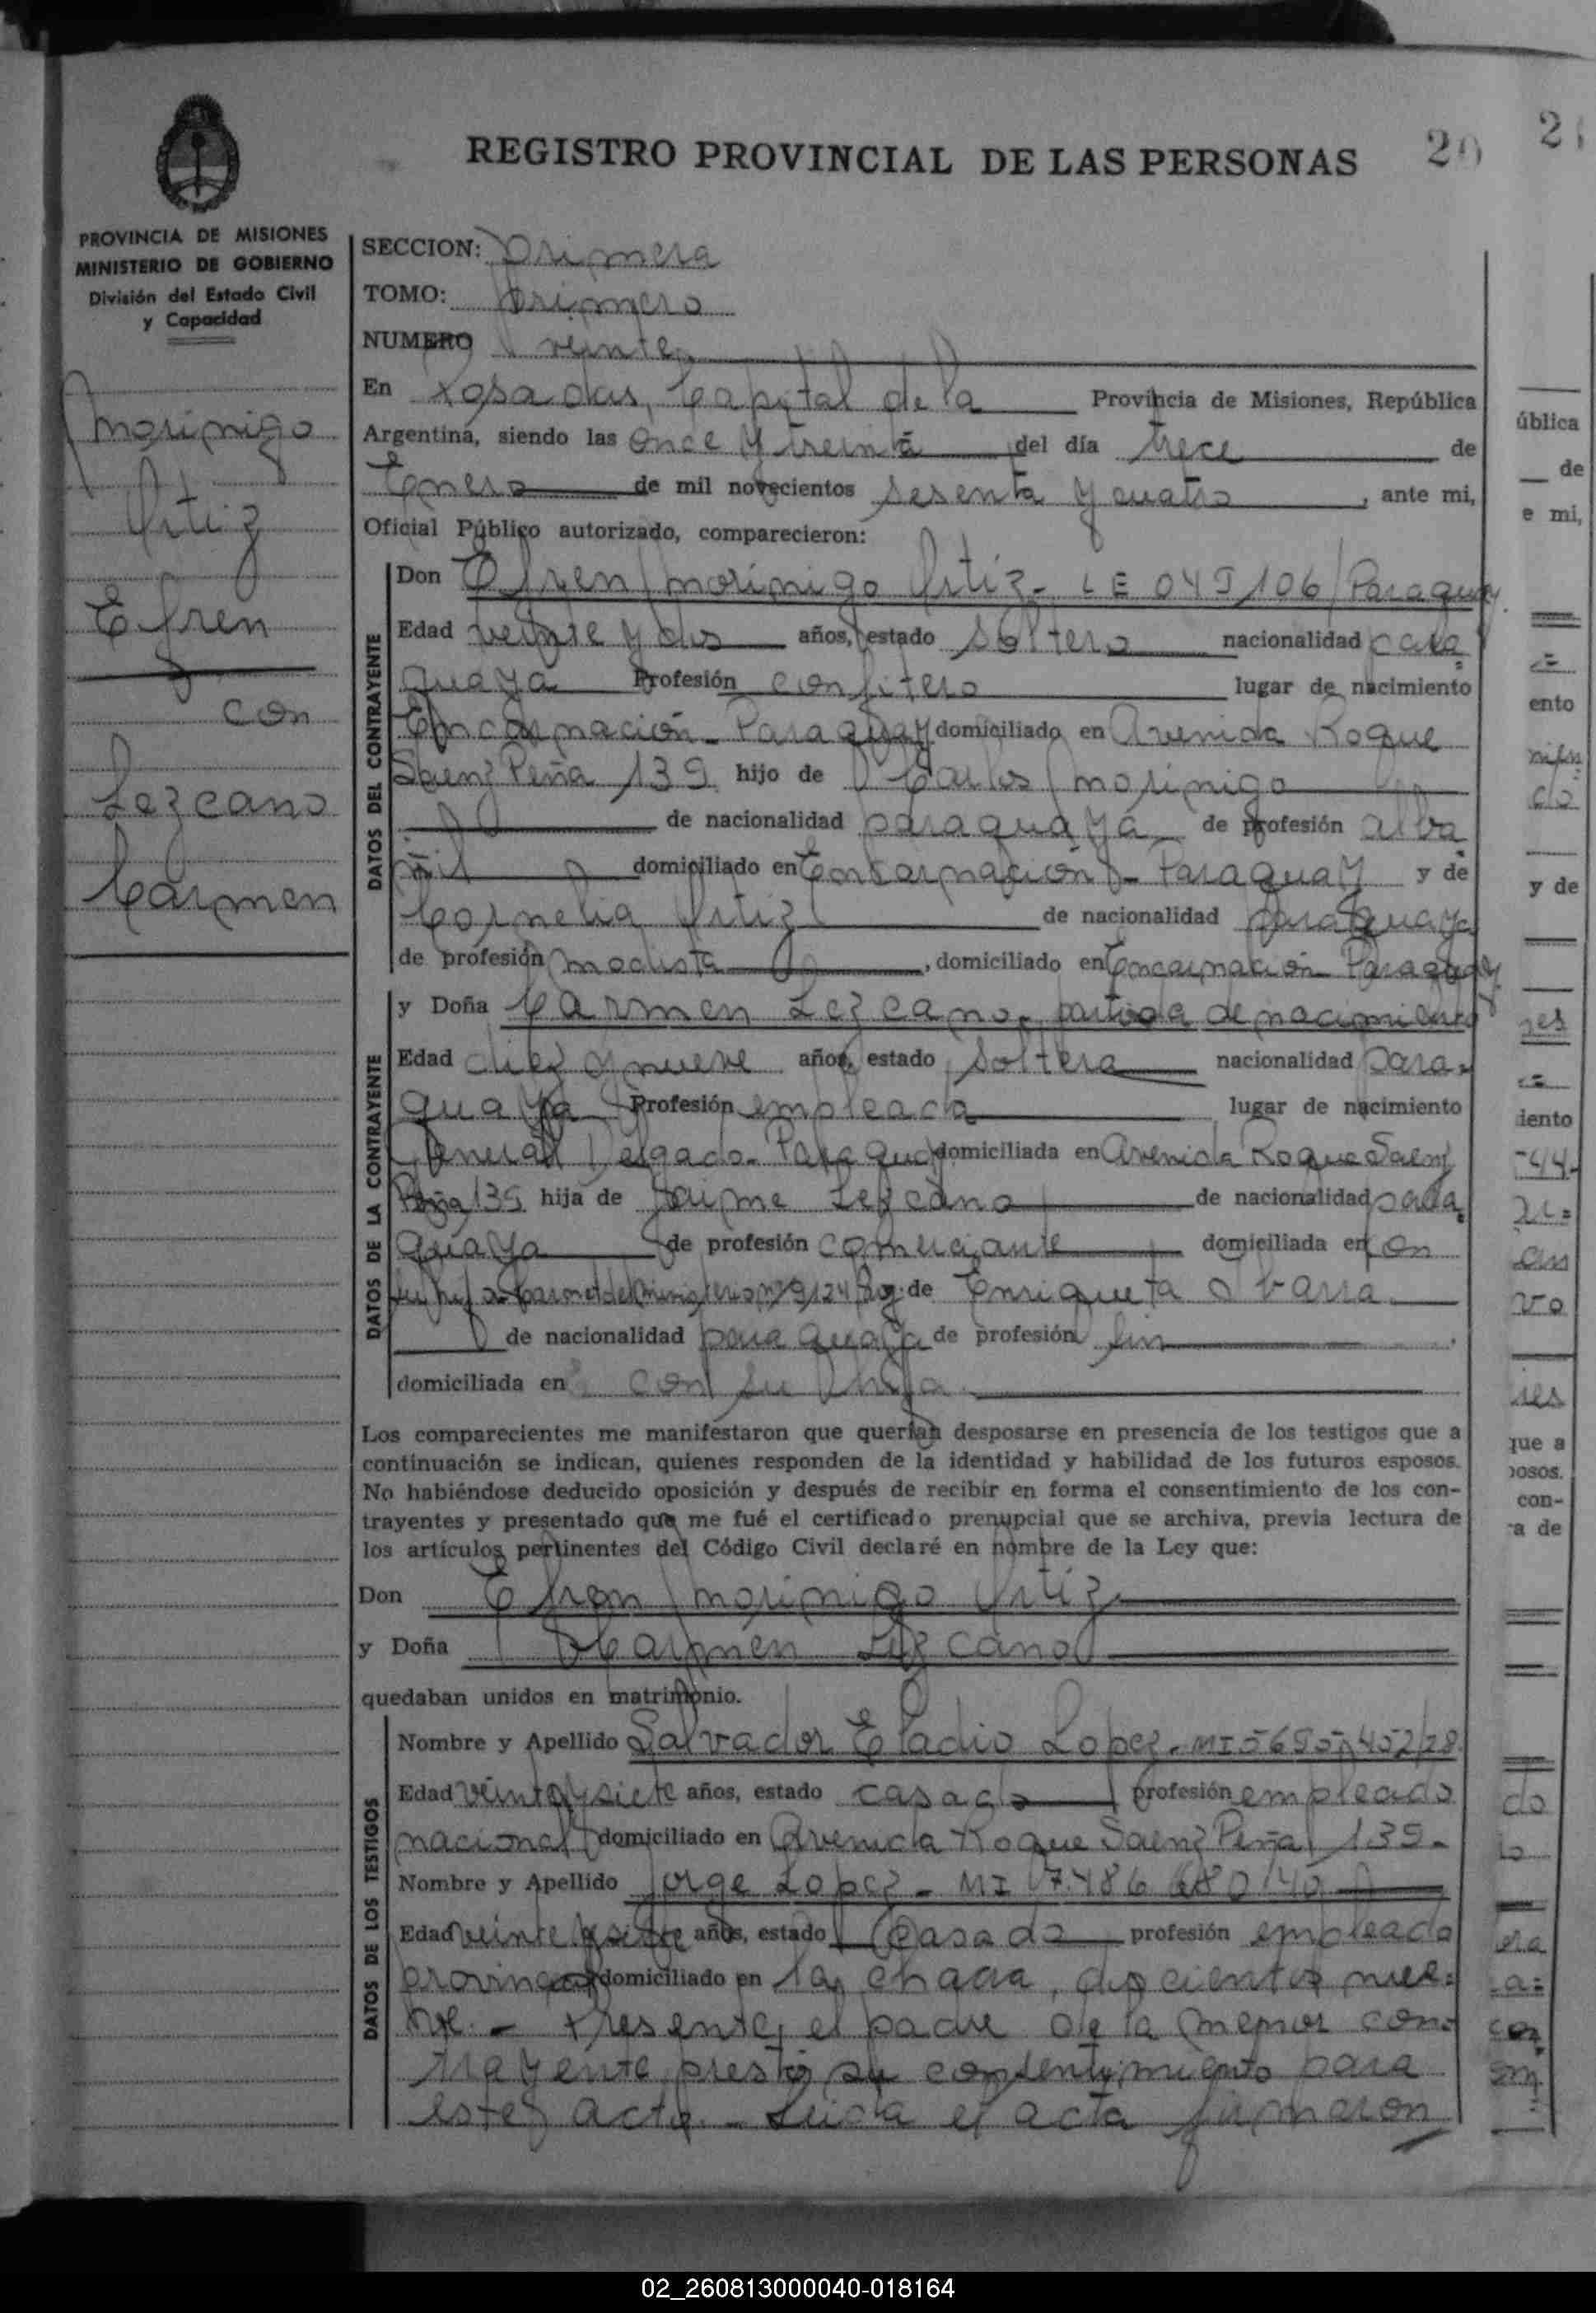 REGISTRO PROVINCIAL DE LAS PERSONAS
20
PROVINCIA DE MISIONES
MINISTERIO DE GOBIERNO
División del Estado Civil
y Capacidad
Morinigo
Ortiz
Efren
con
Lezcano
Carmen
SECCION: Primera
TOMO: Primero
NUMERO veinte
En Posadas, Capital de la Provincia de Misiones, República
Argentina, siendo las once y treinta del día trece de
Enero de mil novecientos sesenta y cuatro, ante mi,
Oficial Público autorizado, comparecieron:
DATOS DEL CONTRAYENTE
Don Efren Morinigo Ortiz - LE 049106/Paraguay
Edad veinte y dos años, estado soltero nacionalidad para=
guaya Profesión confitero lugar de nacimiento
Encarnación - Paraguay domiciliado en Avenida Roque
Saenz Peña 139 hijo de Carlos Morinigo
de nacionalidad paraguaya de profesión alba=
ñil domiciliado en Encarnación - Paraguay y de
Cornelia Ortiz de nacionalidad paraguaya
de profesión modista, domiciliado en Encarnación Paraguay
DATOS DE LA CONTRAYENTE
y Doña Carmen Lezcano - partida de nacimiento
Edad diez y nueve años, estado soltera nacionalidad para=
guaya Profesión empleada lugar de nacimiento
General Delgado - Paraguay domiciliada en Avenida Roque Saenz
Peña 139 hija de Jaime Lezcano de nacionalidad para=
guaya de profesión comerciante domiciliada en con
su hija - de Enriqueta Ibarra
de nacionalidad paraguaya de profesión sin
domiciliada en con su hija
Los comparecientes me manifestaron que querían desposarse en presencia de los testigos que a
continuación se indican, quienes responden de la identidad y habilidad de los futuros esposos.
No habiéndose deducido oposición y después de recibir en forma el consentimiento de los con-
trayentes y presentado que me fué el certificado prenupcial que se archiva, previa lectura de
los artículos pertinentes del Código Civil declaré en nombre de la Ley que:
Don Efren Morinigo Ortiz
y Doña Carmen Lezcano
quedaban unidos en matrimonio.
DATOS DE LOS TESTIGOS
Nombre y Apellido Salvador Eladio Lopez - MI
Edad veinte y siete años, estado casado profesión empleado
nacional domiciliado en Avenida Roque Saenz Peña 139 -
Nombre y Apellido Jorge Lopez - MI 7.486.680/40
Edad veinte y siete años, estado casado profesión empleado
provincial domiciliado en la chacra, doscientos nue=
ve. - Presente, el padre de la menor con=
trayente prestó su consentimiento para
este acto. - Leida el acta firmaron
02_260813000040-018164